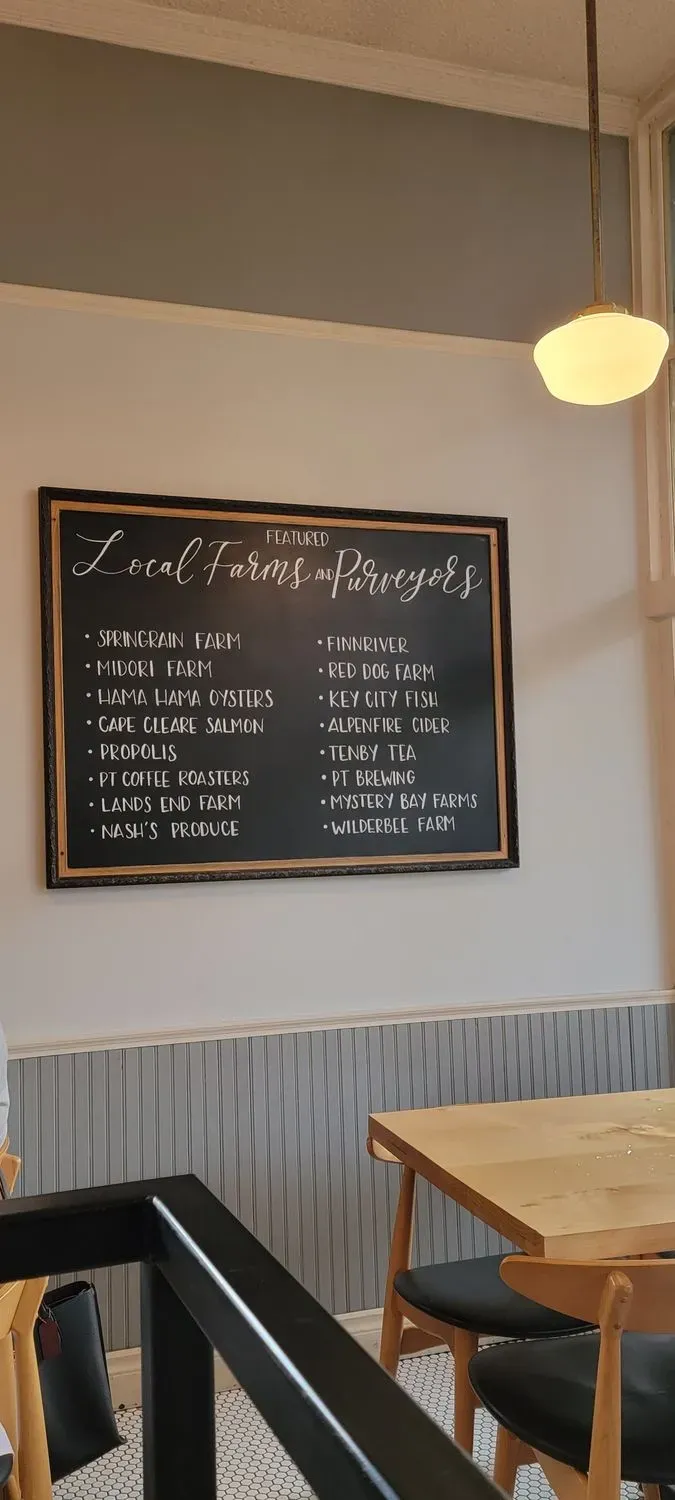 FEATURED
Local Farms AND Purveyors
• SPRINGRAIN FARM
• MIDORI FARM
• HAMA HAMA OYSTERS
• CAPE CLEARE SALMON
• PROPOLIS
• PT COFFEE ROASTERS
• LANDS END FARM
• NASH'S PRODUCE
• FINNRIVER
• RED DOG FARM
• KEY CITY FISH
• ALPENFIRE CIDER
• TENBY TEA
• PT BREWING
• MYSTERY BAY FARMS
• WILDERBEE FARM